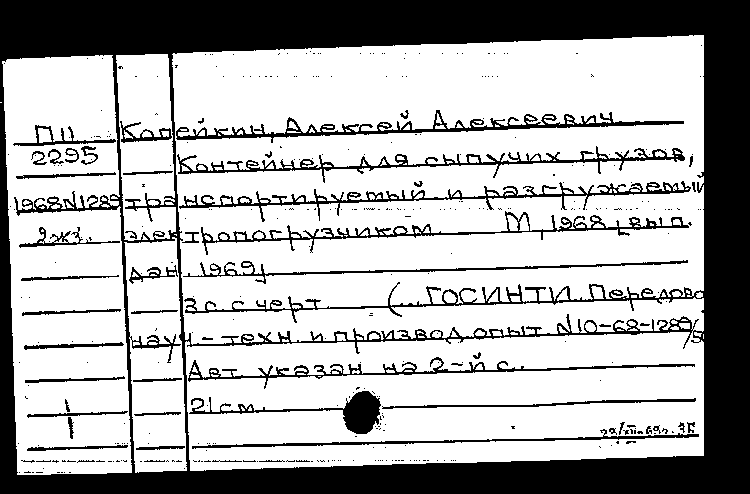 П11 Копейкин, Алексей Алексеевич.
2295 Контейнер для сыпучих грузов,
1968 N1289 транспортируемый и разгружаемый
2экз. электропогрузчиком. М, 1968 [вып.
дан. 1969]
3 с. с черт. (... ГОСИНТИ. Передово
науч.-техн. и производ. опыт. N10-68-1289/
Авт. указан на 2-й с.
21 см.